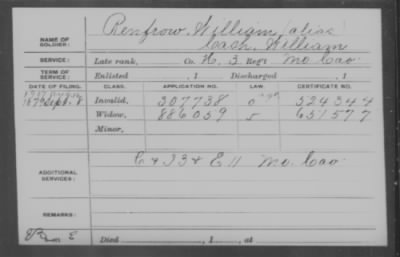 NAME OF SOLDIER: Renfrow, William, (alias
Cash, William
SERVICE: Late rank, Co. H, 3 Reg't Mo. Cav.
TERM OF SERVICE: Enlisted , 1 Discharged , 1
DATE OF FILING. CLASS. APPLICATION NO. LAW CERTIFICATE NO.
Invalid, 307738 524344
Widow, 886059 651577
Minor,
ADDITIONAL SERVICES: C & I 3 & E 11 Mo. Cav.
REMARKS:
Died , 1 , at